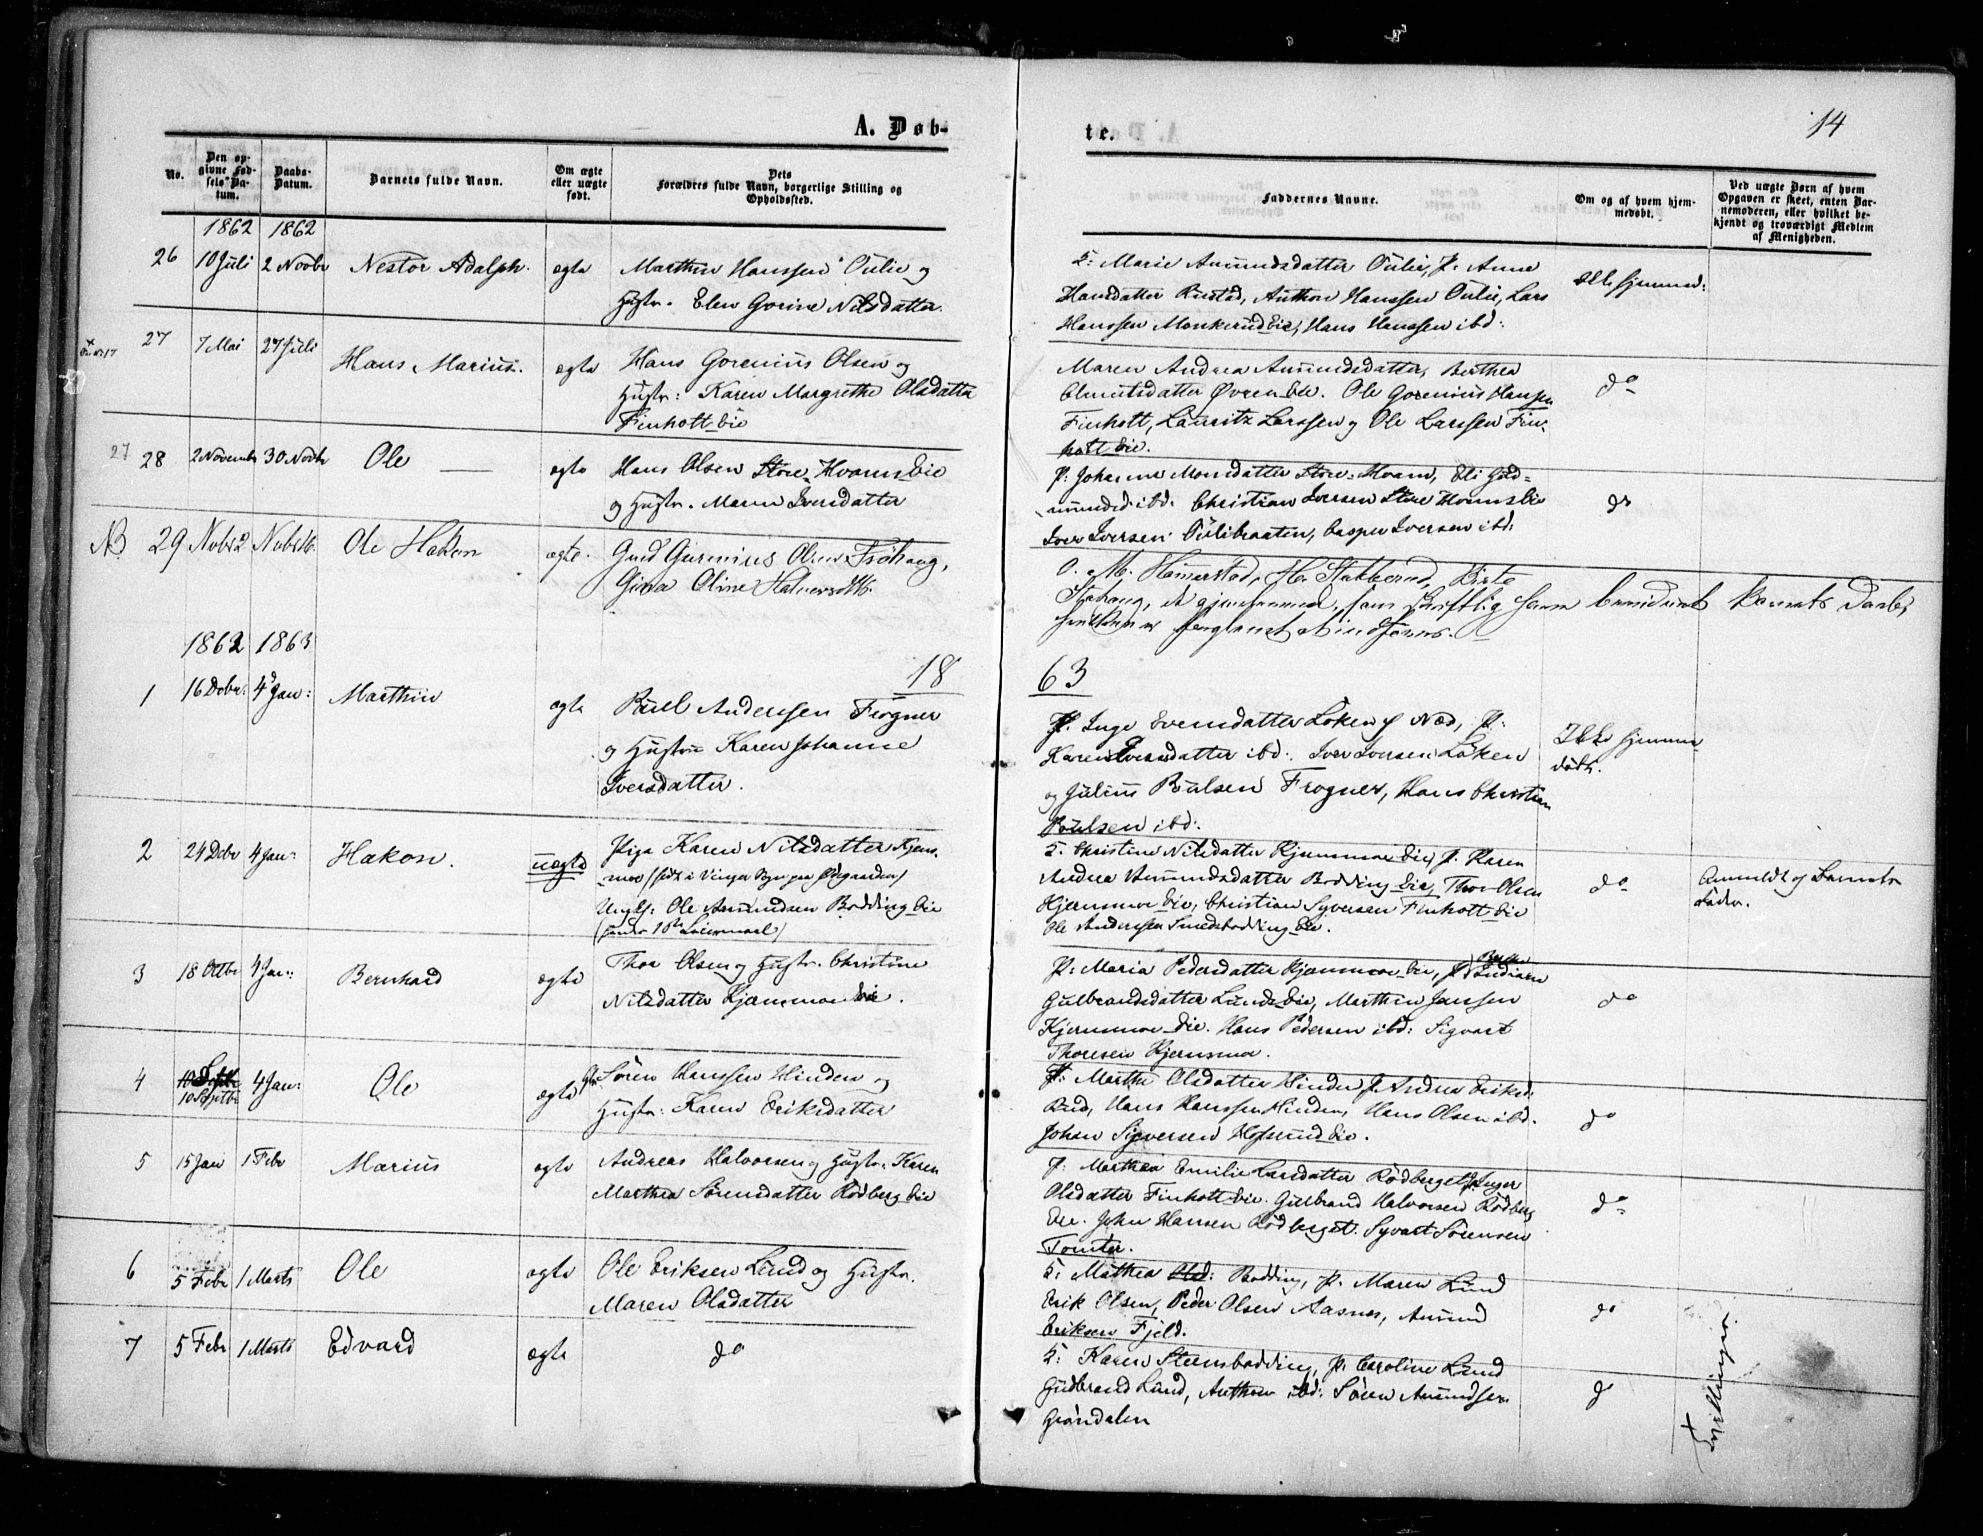 14
A. Døb-
te.
No.
Den op-
givne Fød-
sels-Da-
tum.
Daabs-
Datum.
Barnets fulde Navn.
Om ægte
eller uægte
født.
Dets
Forældres fulde Navn, borgerlige Stilling og
Opholdssted.
Faddernes Navne.
Om og af hvem hjem-
medøbt.
Ved uægte Børn af hvem
Opgaven er skeet, enten Bar-
nemoderen, eller hvilket be-
kjendt og troværdigt Medlem
af Menigheden.
1862 1862
26 10 Juli 2 Novbr Nestor Adolph. ægte Marthin Hanssen Oulie og
Hustr. Elen Gorine Nilsdatter.
F: Marie Amundsdatter Oulie, P. Anne
Hansdatter Rustad, Anthon Hanssen Oulie, Lars
Hanssen Monkerud Eie, Hans Hanssen ibd:
27 7 Mai 27 Juli Hans Marius. ægte Hans Gorenius Olsen og
Hustr: Karen Margrethe Olsdatter
Finholt Eie
Maren Andrea Amundsdatter, Berthea
Øvren Eie. Ole Gorenius Hansen
Finholt, Lauritz Larssen og Ole Larssen Fin-
holt Eie.
do
27 28 2 Novembr 30 Novbr Ole ægte Hans Olsen Store-Hvams Eie
og Hustr. Maren Iversdatter
P: Johanne Monsdatter Store-Hvam, Eli Gud-
ibd: Christian Iversen Store Hvams Eie
Iver Iversen Oulibraaten, Casper Iversen ibd:
do
NB 29 Novbr 2 Novbr 16. Ole Hakon ægte. Gud Gurenius Olsen
Oline Halvorsdttr.
1862 1863
1863
1 16 Debr: 4 Jan: Marthin ægte Paul Anderssen Frogner
og Hustru Karen Johanne
Iversdatter.
P. Inge Svensdatter Løken af Næs, P:
Karen Iversdatter ibd: Iver Iversen Løken
og Julius Paulsen Frogner, Hans Christian
Poulsen ibd:
Ikke hjemme-
døbt.
2 24 Debr 4 Jan: Hakon. uægte Pige Karen Nilsdatter Kjens-
moe (født i Vinger Sogn paa Ødegaarden)
Ungk: Ole Amundsen Bodding Eie
F: Christine Nilsdatter Kjernmoe Eie, P. Karen
Andrea Amundsdatter Bodding Eie, Thor Olsen
Kjernmoe Eie, Christian Syversen Finholt Eie
Ole Anderssen Smedsbodding Eie.
do
Anmeldt af Barnets
Fader.
3 18 Octbr 4 Jan: Bernhard ægte Thor Olsen og Hustr. Christine
Nilsdatter Kjernsmoe Eie.
P: Maria Pedersdatter Kjernmoe Eie, P
Gulbrandsdatter Lunds Eie, Marthin Jansen
Kjernmoe Eie. Hans Pedersen ibd: Sigvart
Thoresen Kjernsmoe.
do
4 10 Septbr 4 Jan: Ole ægte Søren Hanssen Hinden og
Hustr: Karen Eriksdatter
P: Marthe Olsdatter Hinden P. Andrea Eriksd:
Rud, Hans Hanssen Hinden, Hans Olsen ibd.
Johan Syversen Hofsrud Eie.
do
5 15 Jan 1 Febr Marius ægte Andreas Halvorsen og Hustr: Karen
Marthea Sørensdatter Rødberg Eie
P: Marthea Emilie Larsdatter Rødberget, P. Inger
Olsdatter Finholt Eie. Gulbrand Halvorsen Rødberg
Eie. John Hansen Rødberget. Syvart Sørensen
Tomter.
do
6 5 Febr 1 Marts Ole ægte Ole Eriksen Lund og Hustr.
Maren Olsdatter
F: Mathea Olsd: Bodding, P. Maren Lund
Erik Olsen, Peder Olsen Aasnes, Amund
Eriksen Fjeld.
do
7 5 Febr 1 Marts Edvard ægte do
F: Karen Steensbodding, P. Caroline Lund
Gudbrand Lund, Anthon ibd: Søren Amundsen
Grøndalen
do
Tvillinger.